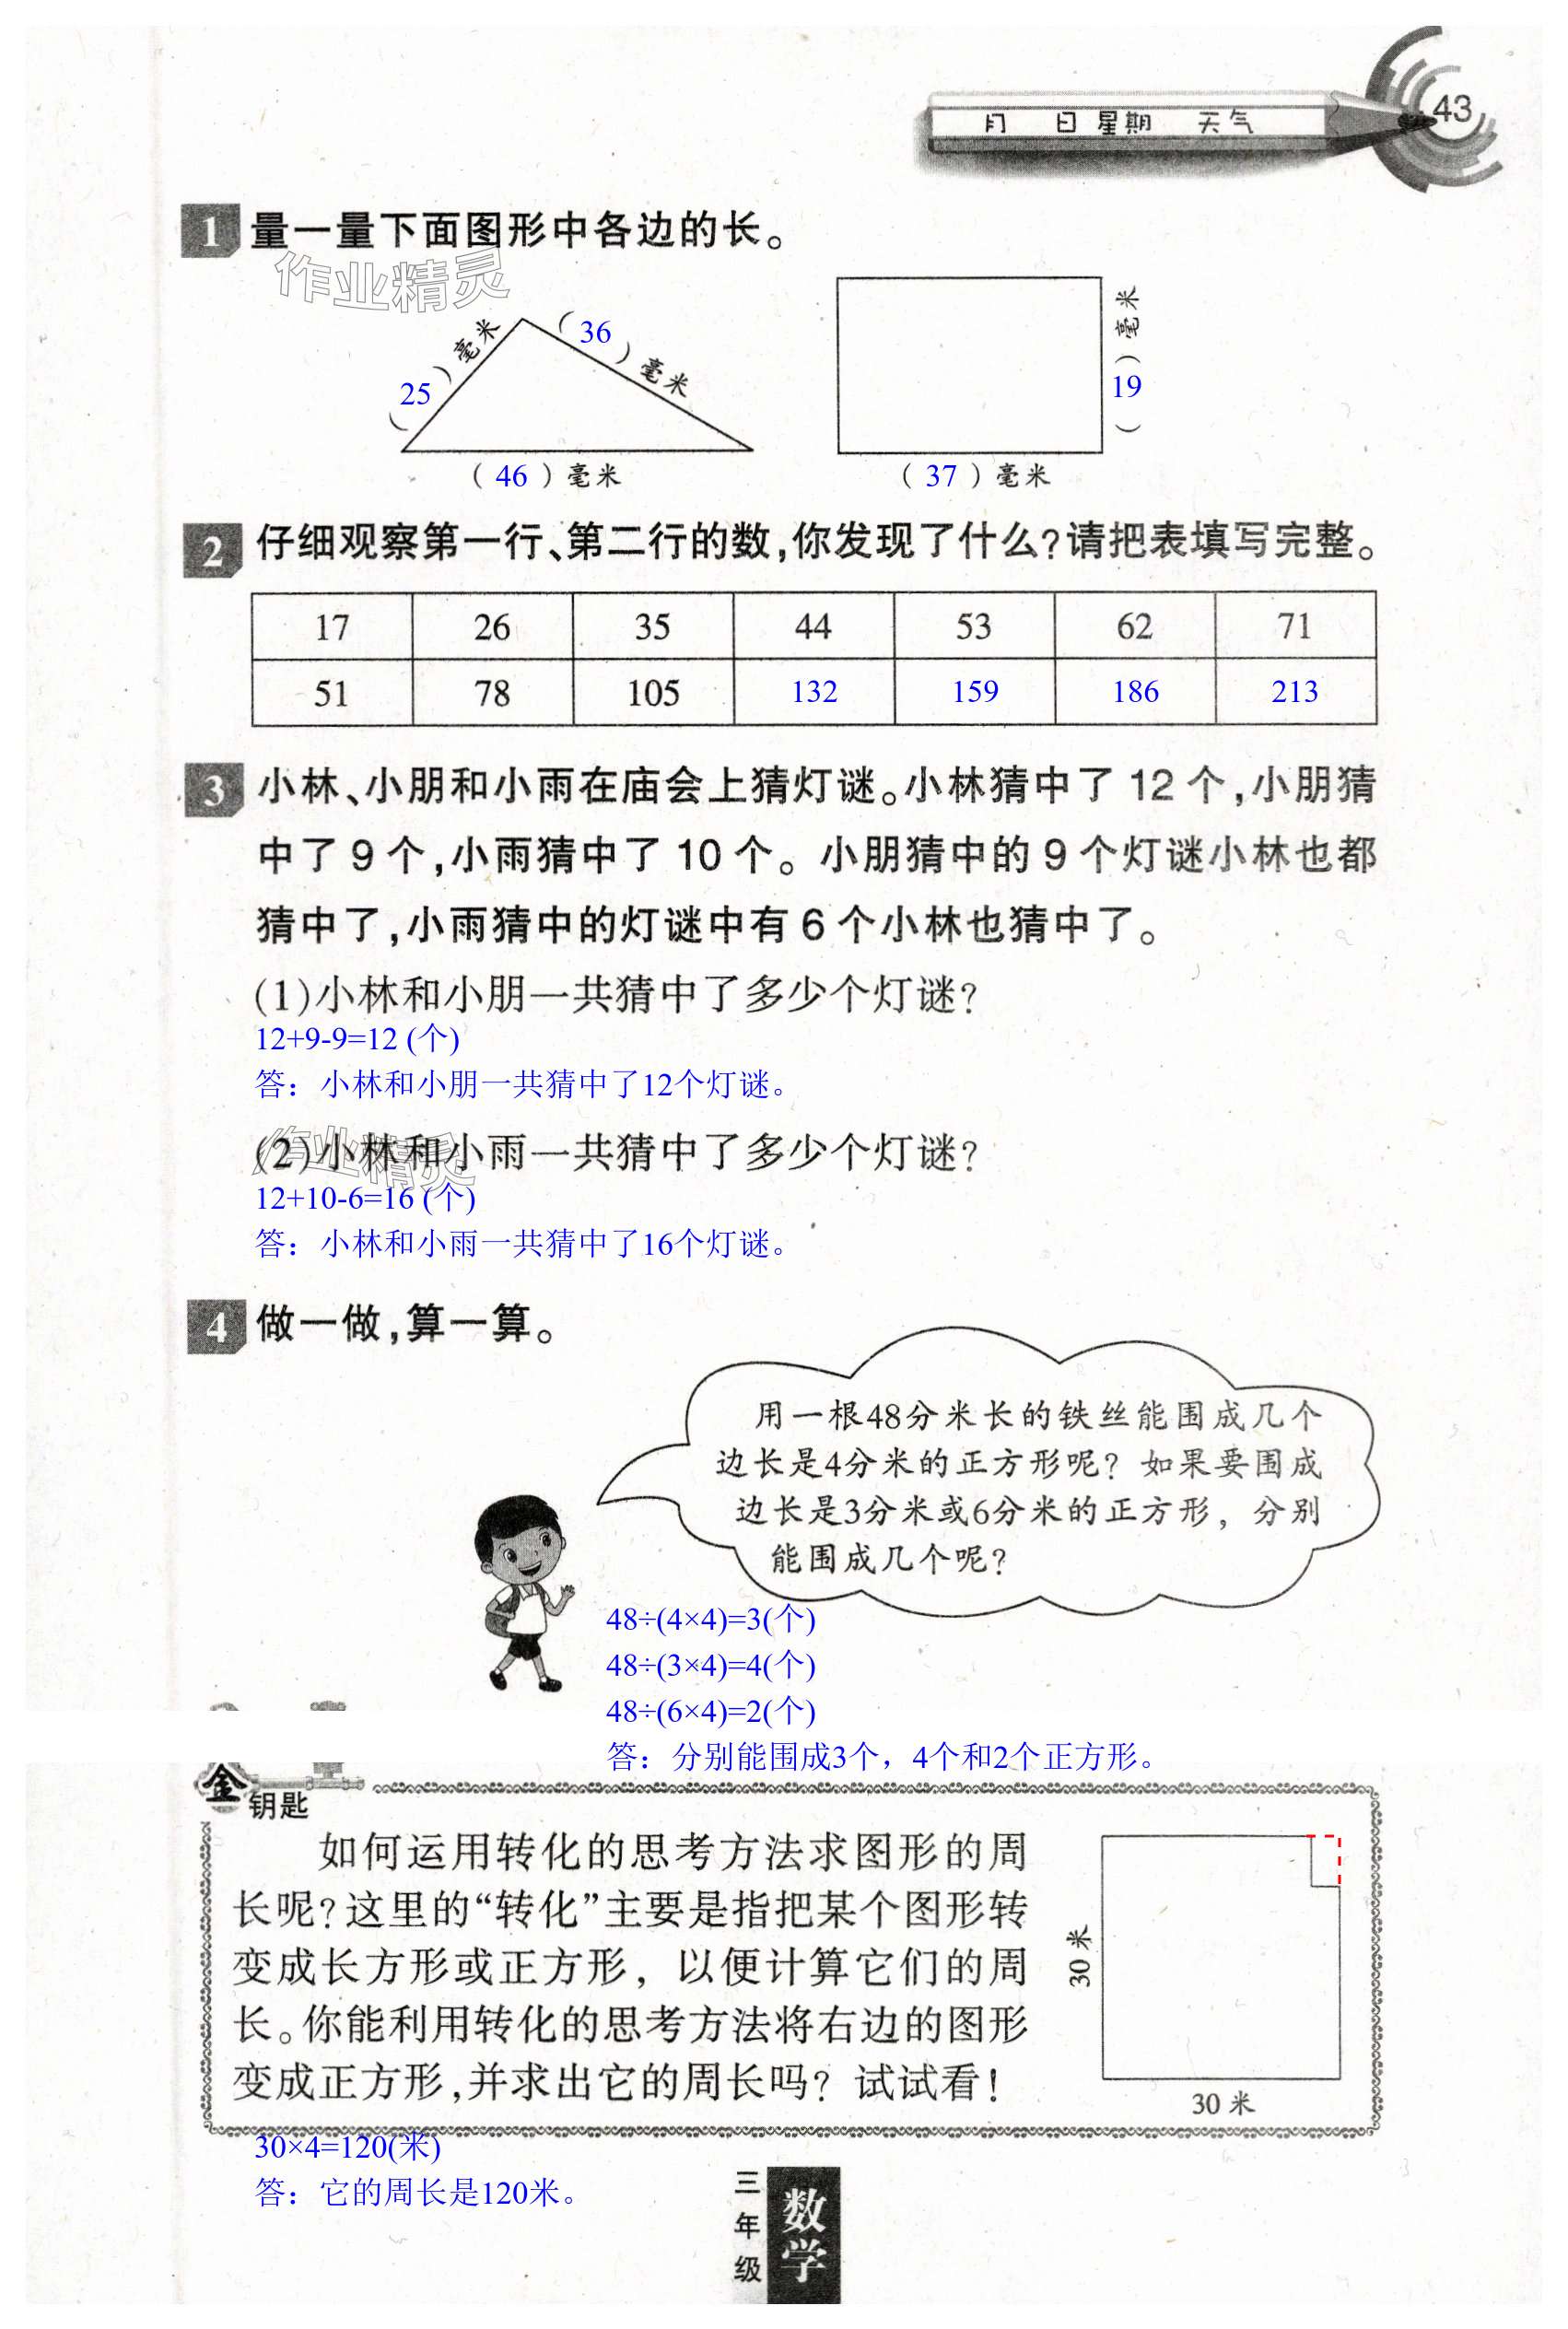 月 日 星期 天气
43
1 量一量下面图形中各边的长。
作业精灵
(25)毫米
(36)毫米
(19)毫米
(46)毫米
(37)毫米
2 仔细观察第一行、第二行的数,你发现了什么?请把表填写完整。
17 26 35 44 53 62 71
51 78 105 132 159 186 213
3 小林、小朋和小雨在庙会上猜灯谜。小林猜中了 12 个,小朋猜
中了 9 个,小雨猜中了 10 个。小朋猜中的 9 个灯谜小林也都
猜中了,小雨猜中的灯谜中有 6 个小林也猜中了。
(1)小林和小朋一共猜中了多少个灯谜?
12+9-9=12 (个)
答：小林和小朋一共猜中了12个灯谜。
作业精灵
(2)小林和小雨一共猜中了多少个灯谜?
12+10-6=16 (个)
答：小林和小雨一共猜中了16个灯谜。
4 做一做,算一算。
用一根48分米长的铁丝能围成几个
边长是4分米的正方形呢?如果要围成
边长是3分米或6分米的正方形，分别
能围成几个呢?
48÷(4×4)=3(个)
48÷(3×4)=4(个)
48÷(6×4)=2(个)
答：分别能围成3个，4个和2个正方形。
金
钥匙
如何运用转化的思考方法求图形的周
长呢?这里的“转化”主要是指把某个图形转
变成长方形或正方形，以便计算它们的周
长。你能利用转化的思考方法将右边的图形
变成正方形,并求出它的周长吗? 试试看!
30 米
30 米
30×4=120(米)
答：它的周长是120米。
三年级
数学